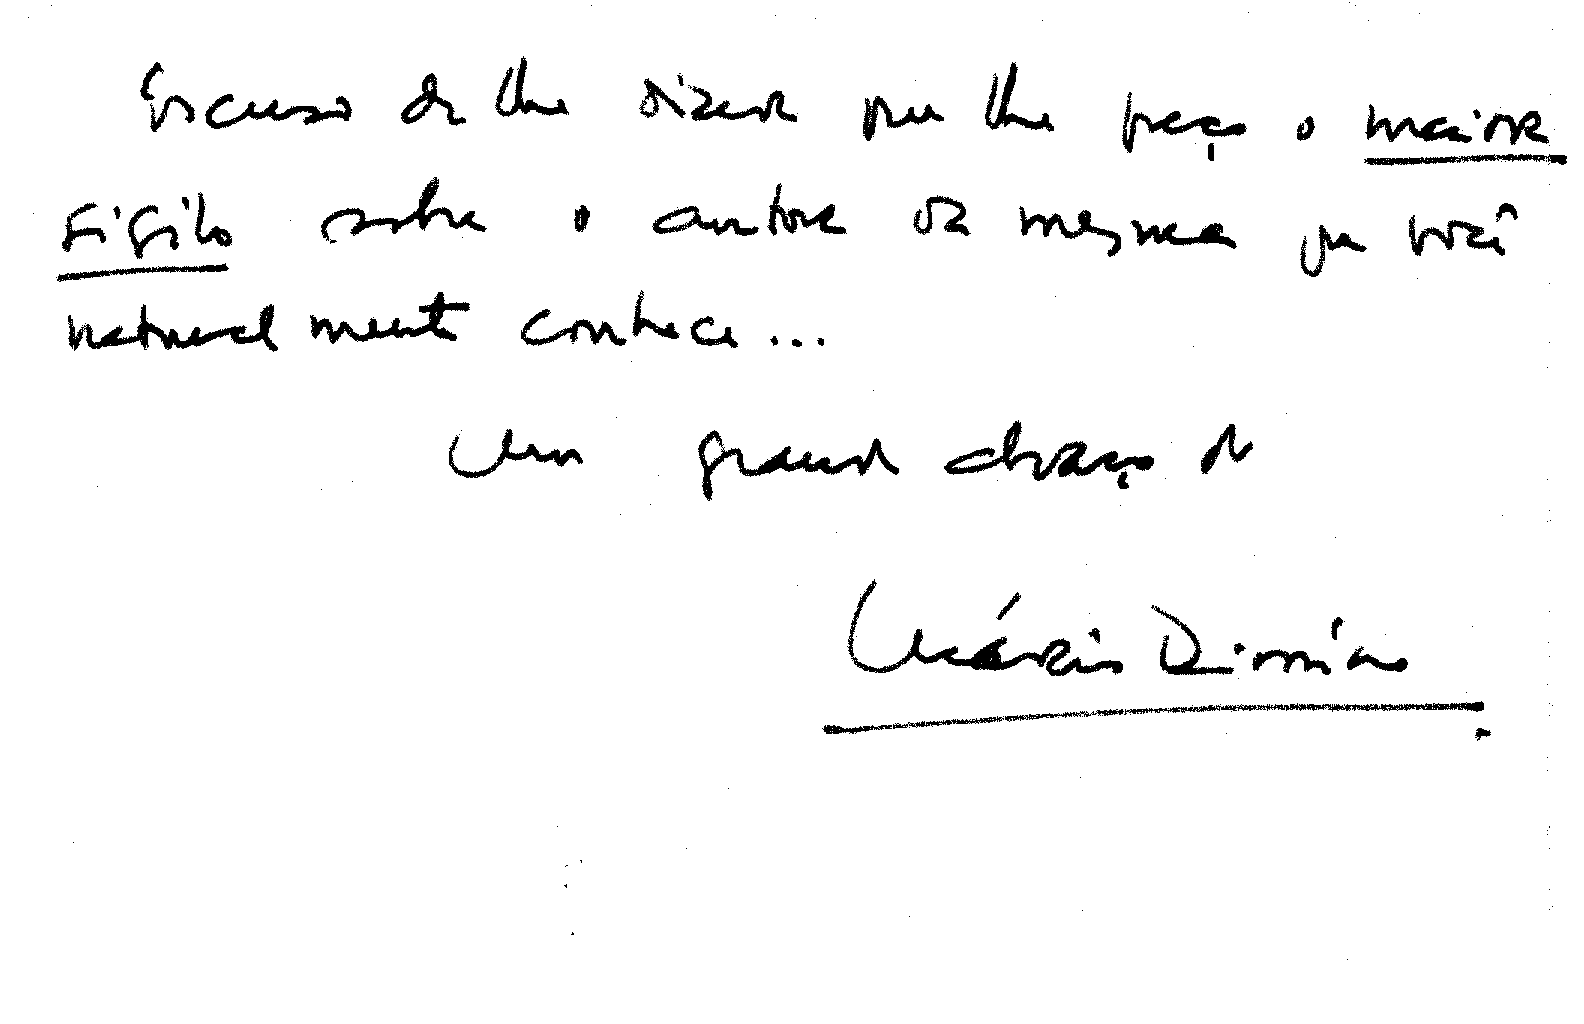 Escuso de lhe dizer que lhe peço o maior
sigilo sobre o autor da mesma que você
naturalmente conhece...
Um grande abraço de
Mário Dionísio